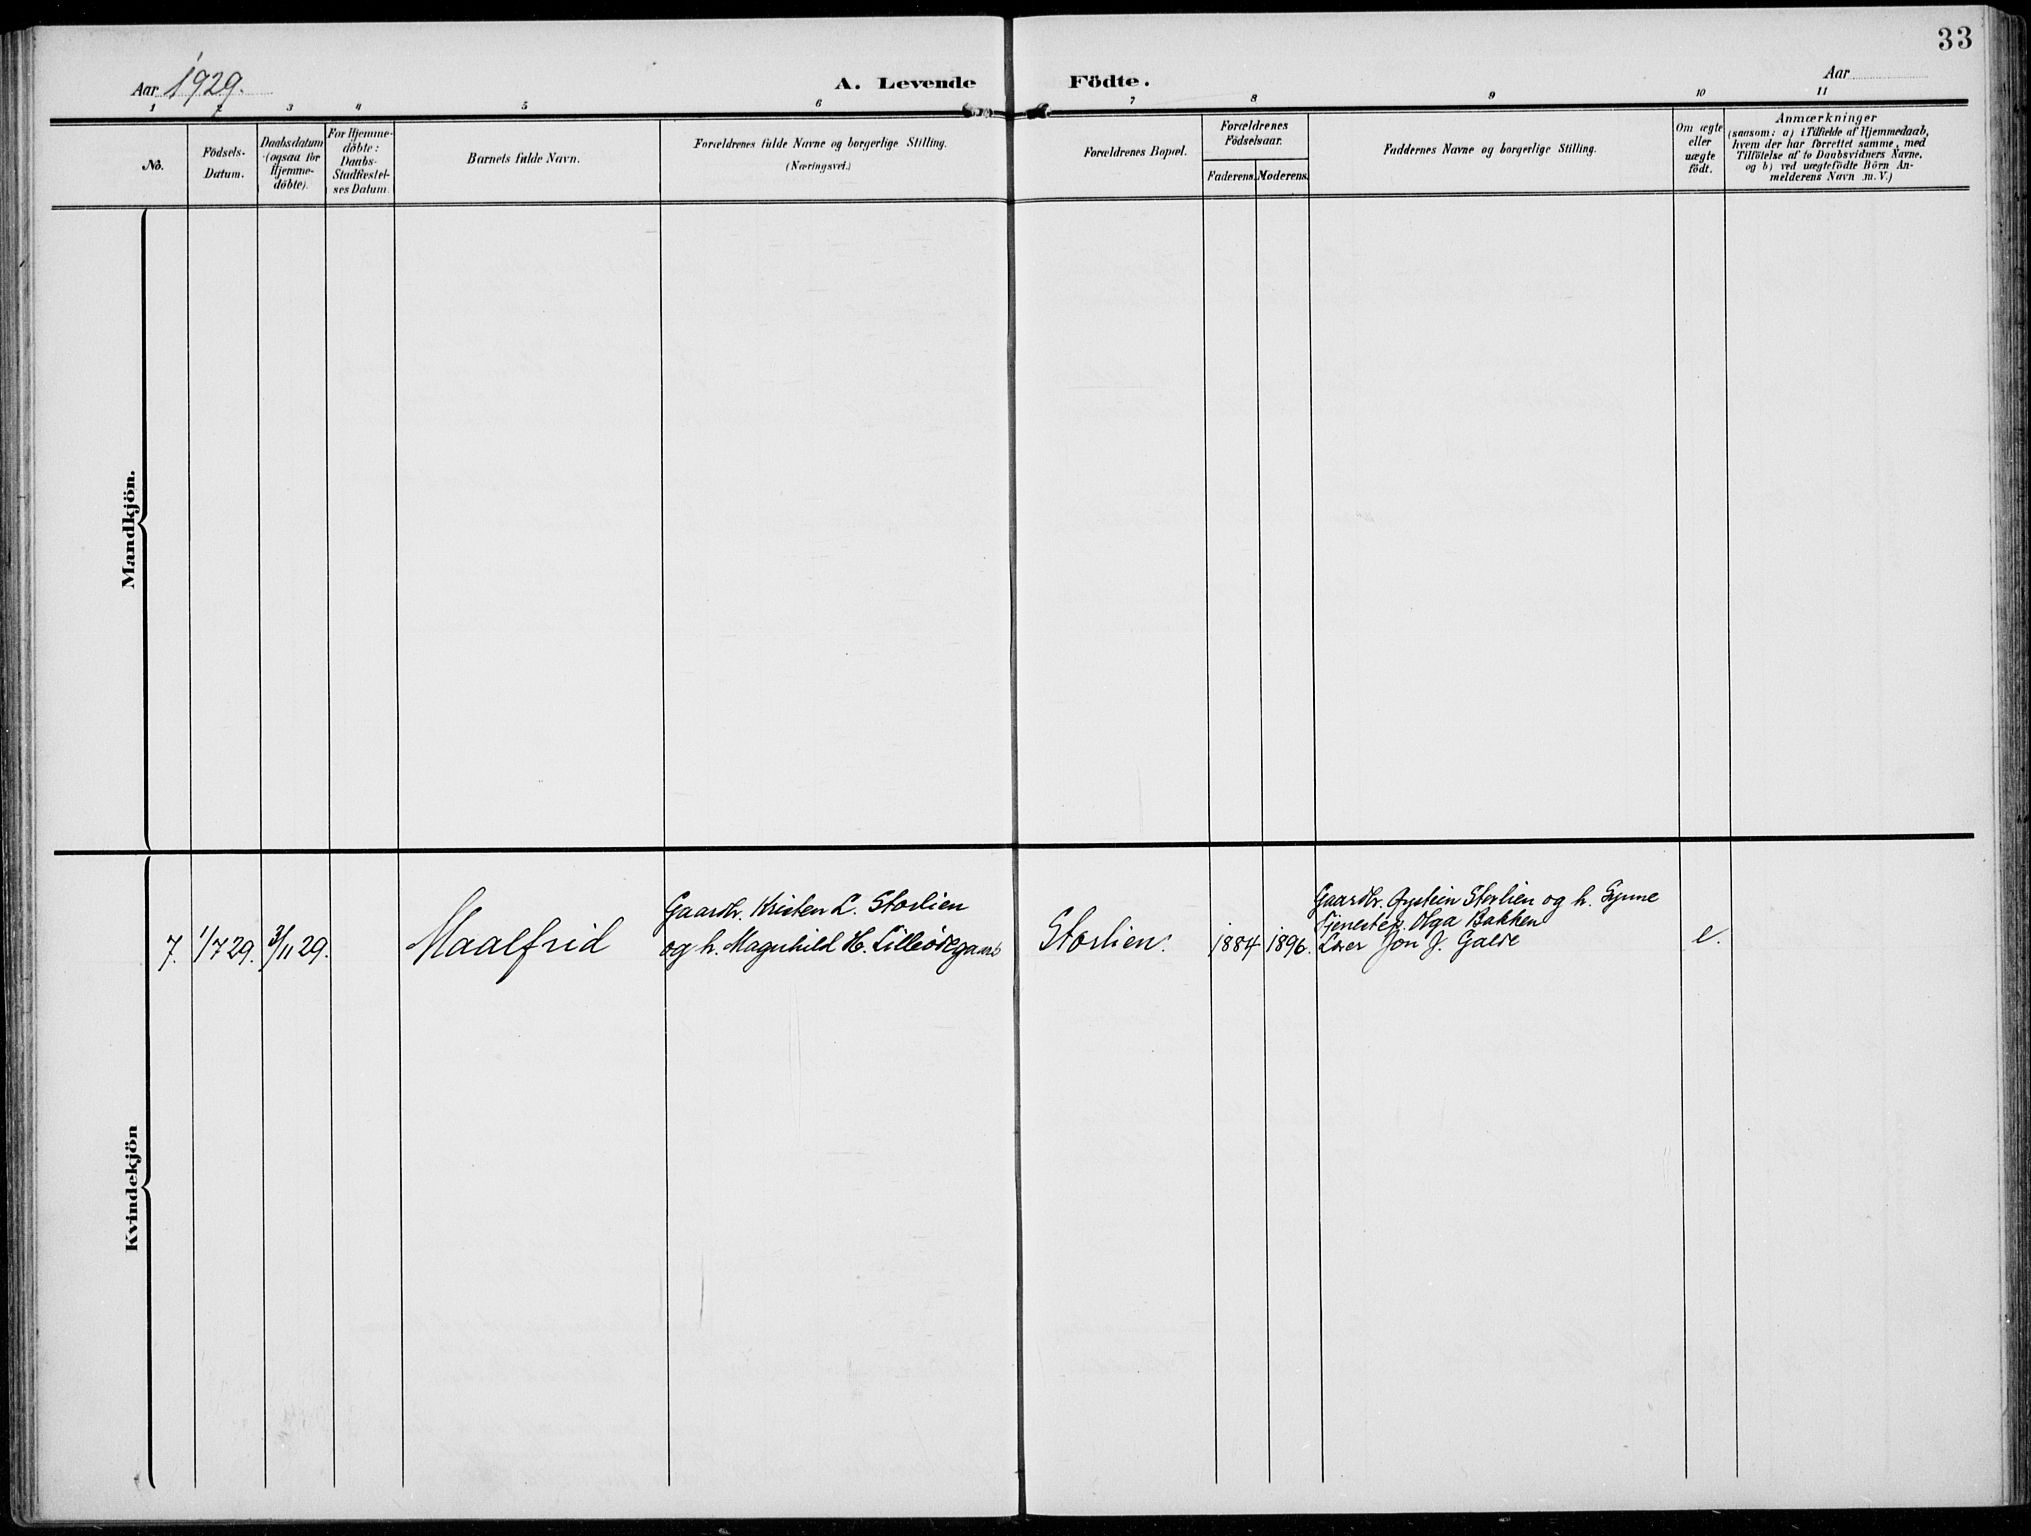 33
Aar 1929.
A. Levende Födte.
Aar
1 2 3 4 5 6 7 8 9 10 11
No.
Födsels-
Datum.
Daabsdatum
(ogsaa for
Hjemme-
döbte).
For Hjemme-
döbte:
Daabs-
Stadfæstel-
ses Datum.
Barnets fulde Navn.
Forældrenes fulde Navne og borgerlige Stilling.
(Næringsvei.)
Forældrenes Bopæl.
Forældrenes
Födselsaar.
Faderens. Moderens.
Faddernes Navne og borgerlige Stilling.
Om ægte
eller
uægte
födt.
Anmærkninger
(saasom: a) i Tilfælde af Hjemmedaab,
hvem der har forrettet samme, med
Tilföielse af to Daabsvidners Navne,
og b) ved uægtefödte Börn An-
melderens Navn m. V.)
Mandkjön.
Kvindekjön
7. 1/7 29. 3/11 29.
Maalfrid
Gaardbr. Kristen L. Storlien
og h. Magnhild H. Lilleödegaard
Storlien.
1884 1896.
Gaardbr. Øystein Storlien og h. Synne
Tjenestep. Olga Bakken
Lærer Jon J. Galde
e.